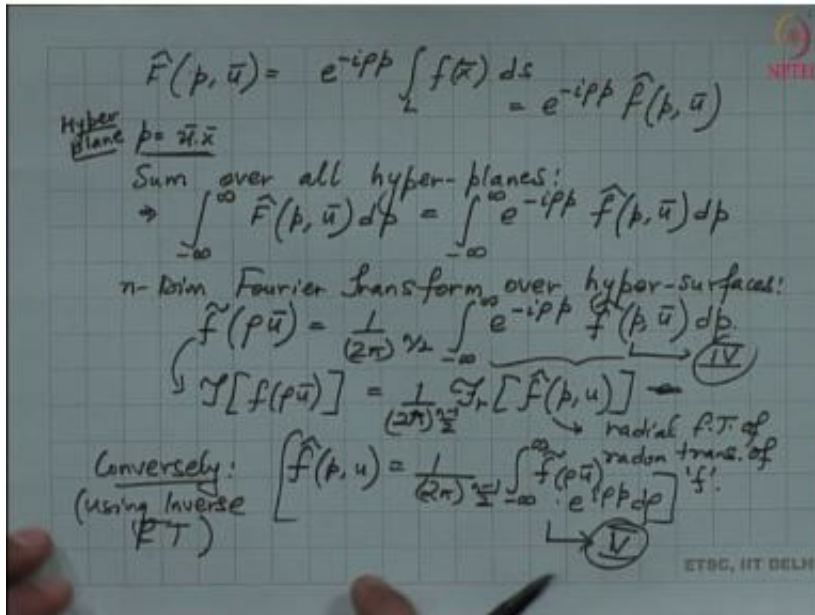 F̂(p, ū) = e^{-iρp} ∫_L f(x̄) ds
= e^{-iρp} f̂(p, ū)
NPTEL
Hyper plane p = ū.x̄
Sum over all hyper-planes:
⇒ ∫_{-∞}^{∞} F̂(p, ū) dp = ∫_{-∞}^{∞} e^{-iρp} f̂(p, ū) dp
n-Dim Fourier Transform over hyper-surfaces:
f̃(ρū) = 1/(2π)^{n/2} ∫_{-∞}^{∞} e^{-iρp} f̂(p, ū) dp.
IV
ℱ[f(ρū)] = 1/(2π)^{\frac{n-1}{2}} ℱ_r[f̂(p, u)]
radial f.T. of
radon trans. of
'f'.
Conversely:
(using Inverse
FT)
[f̂(p, u) = 1/(2π)^{\frac{n-1}{2}} ∫_{-∞}^{∞} f̃(ρū)
· e^{iρp} dρ]
V
ETSC, IIT DELHI